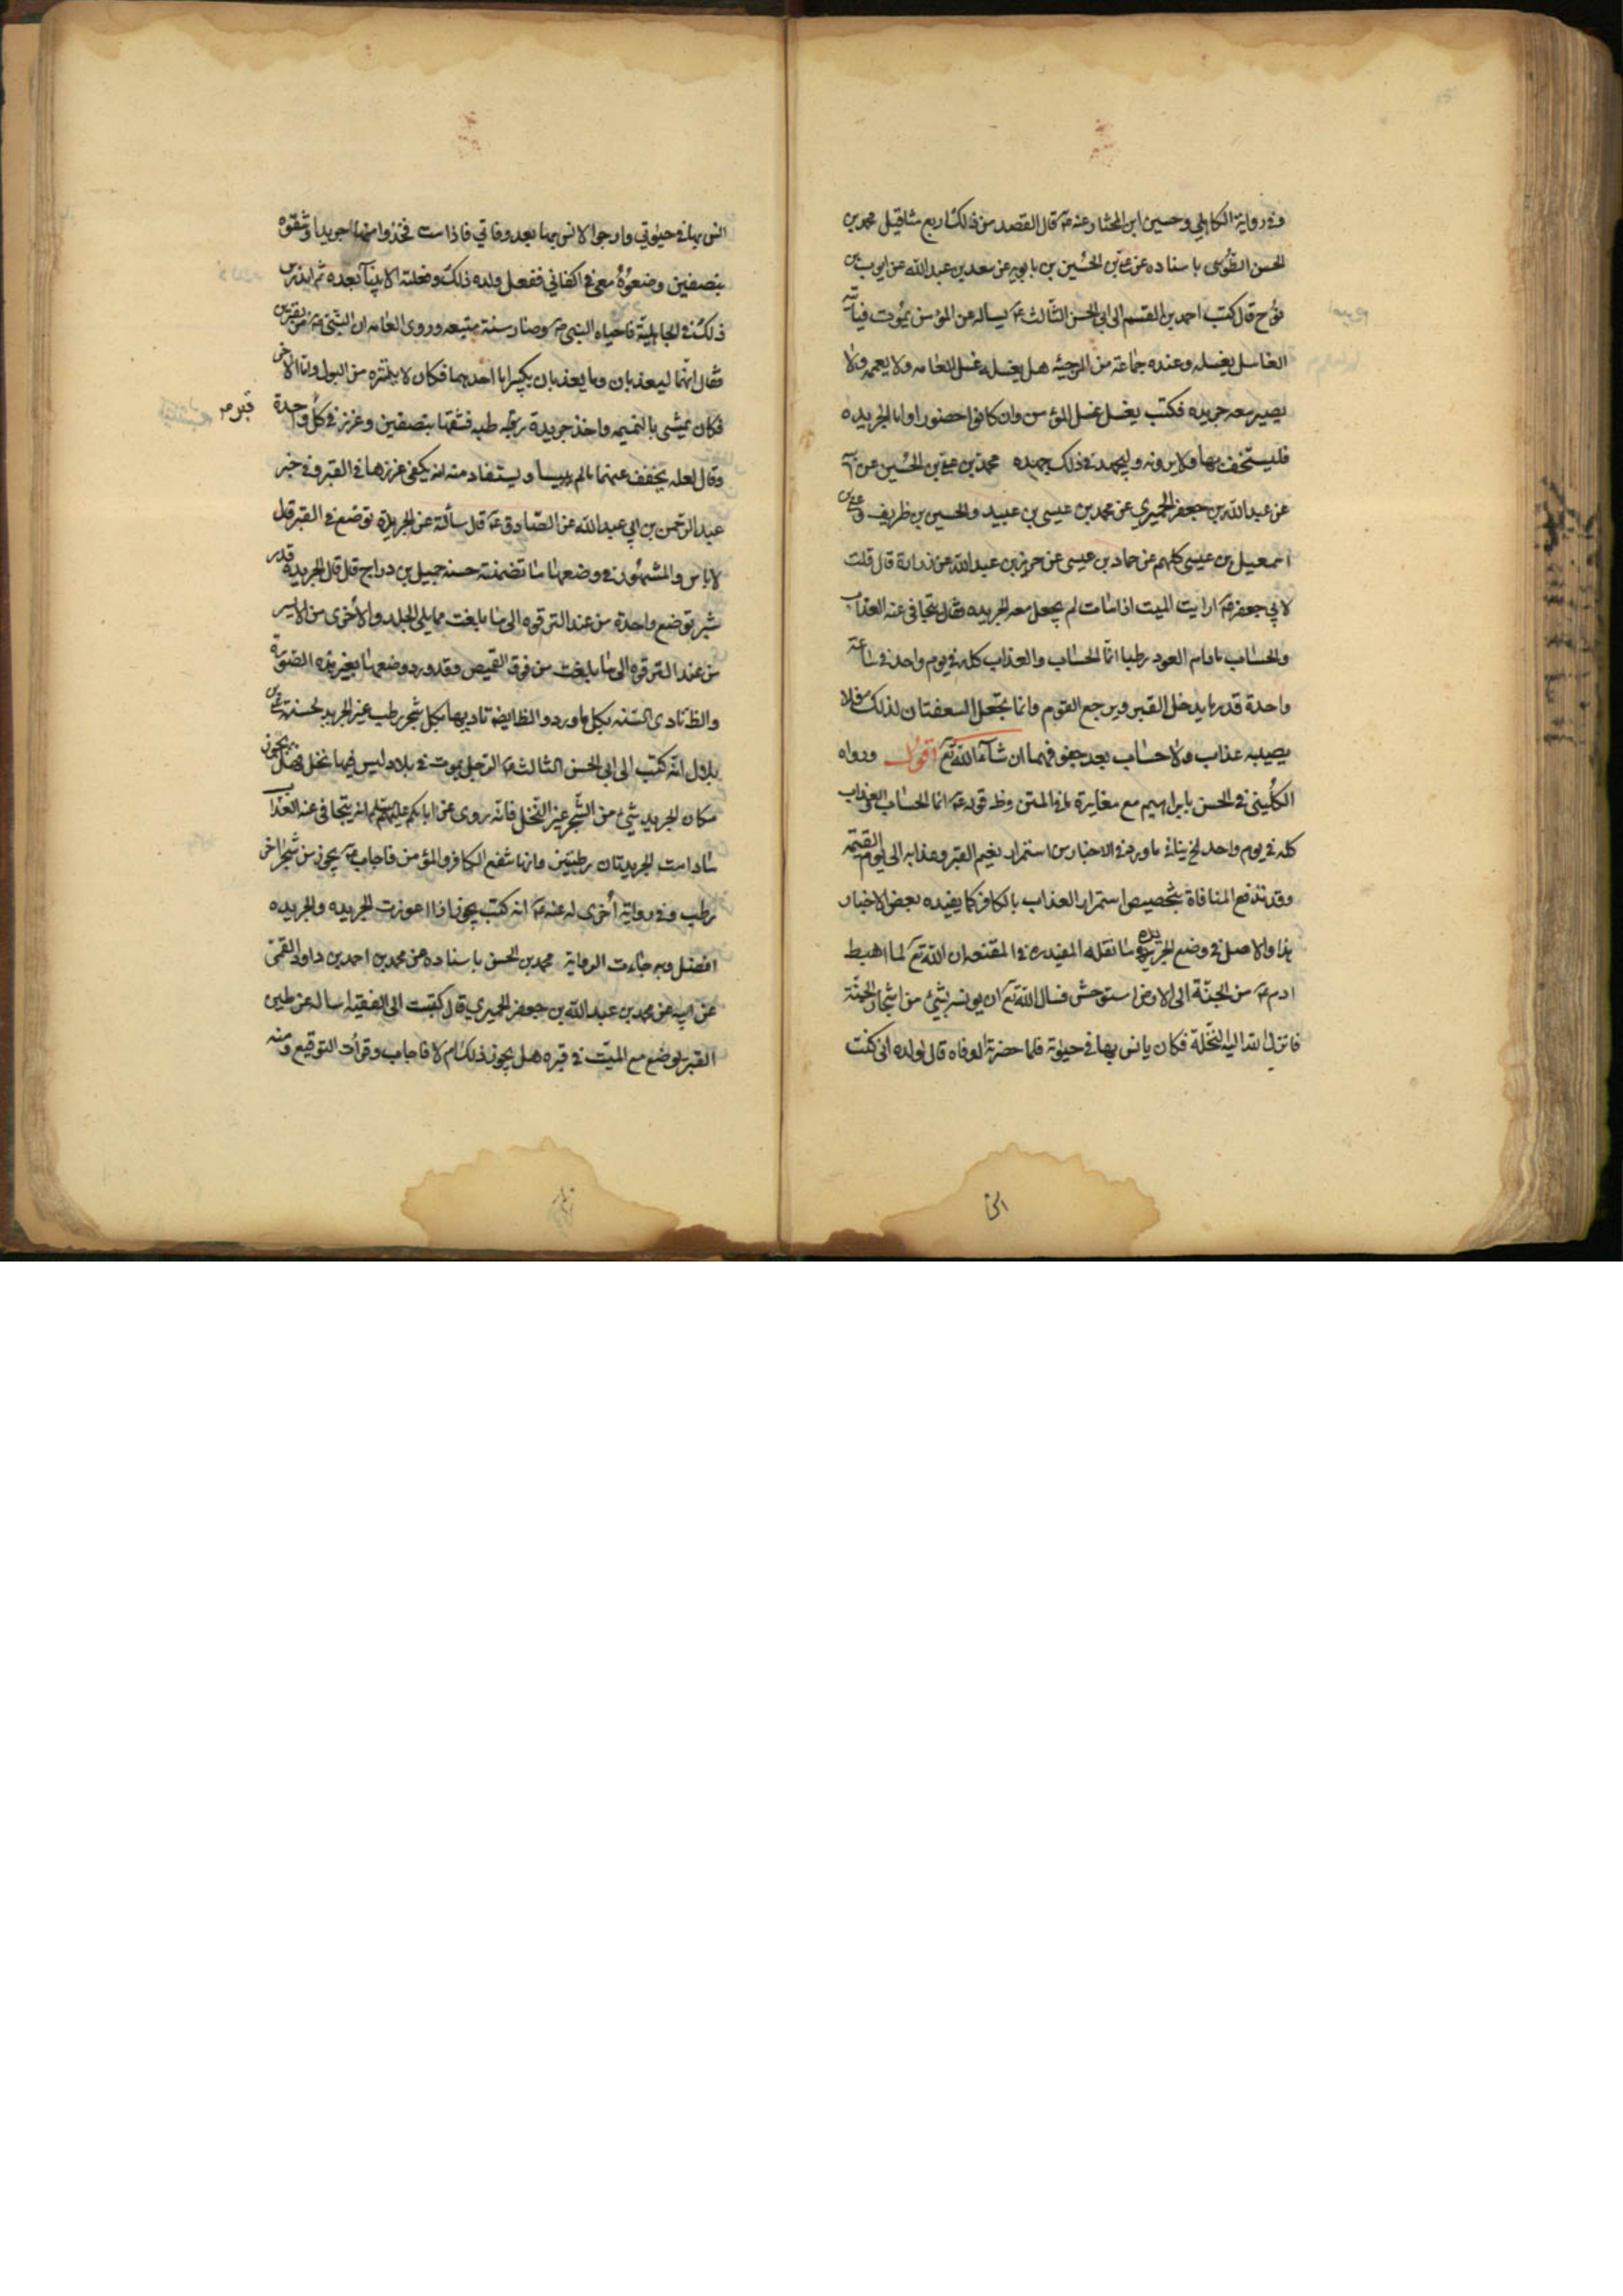 وفي رواية الكاهلي وحسين ابن المختار عنه ع قال القصد من ذلك اربع مثاقيل محمد بن
الحسن الطوسي باسناده عن علي بن الحسين بن بابويه عن سعد بن عبد الله عن ايوب بن
نوح قال كتب احمد بن القسم الى ابي الحسن الثالث ع يساله عن المؤمن يموت فياتيه
الغاسل يغسله وعنده جماعة من المرجئه هل يغسله غسل العامه ولا يعممه ولا
يصير معه جريده فكتب يغسل غسل المؤمن وان كانوا حضورا واما الجريده
فليستخف بها ولا يرونه وليجهد في ذلك جهده محمد بن علي بن الحسين عن ابيه
عن عبد الله بن جعفر الحميري عن محمد بن عيسى بن عبيد والحسن بن ظريف وعلي بن
اسمعيل بن عيسى كلهم عن حماد بن عيسى عن حريز بن عبد الله عن زرارة قال قلت
لابي جعفر ع ارايت الميت اذا مات لم يجعل معه الجريده فقال يتجافى عنه العذاب
والحساب مادام العود رطبا انما الحساب والعذاب كله في يوم واحد في ساعة
واحدة قدر ما يدخل القبر ويرجع القوم وانما يجعل السعفتان لذلك فلا
يصيبه عذاب ولا حساب بعد جفوفهما ان شآء الله تع اقول ورواه
الكليني في الحسن بابراهيم مع مغايرة ما في المتن وظ قوله ع انما الحساب والعذاب
كله في يوم واحد الخ ينافي ما ورد في الاخبار من استمرار نعيم القبر وعذابه الى يوم القيمة
وقد تندفع المنافاة بتخصيص استمرار العذاب بالكافر كما يفيده بعض الاخبار
هذا والاصل في وضع الجريده ما نقله المفيد ره في المقنعه ان الله تع لما اهبط
ادم ع من الجنة الى الارض استوحش فسال الله تع ان يونسه بشئ من اشجار الجنة
فانزل الله اليه النخلة فكان يانس بها في حيوته فلما حضرته الوفاه قال لولده اني كنت
انس بها في حيوتي وارجوا الانس بها بعد وفاتي فاذا مت فخذوا منها جريدا وشقوه
بنصفين وضعوه معي في اكفاني ففعل ولده ذلك وفعلته الانبيآ بعده ثم اندرس
ذلك في الجاهلية فاحياه النبي ص وصار سنة متبعه وروى العامه ان النبي ص مر بقبرين
فقال انهما ليعذبان وما يعذبان بكبير اما احدهما فكان لا يتنزه من البول واما الاخر
فكان يمشي بالنميمه واخذ جريدة رطبه فشقها بنصفين وغرز في كل واحدة
قبر
وقال لعله يخفف عنهما مالم ييبسا ويستفاد منه انه يكفي غرزها في القبر وفي خبر
عبد الرحمن بن ابي عبد الله عن الصادق ع قال سألته عن الجريدة توضع في القبر قال
لا باس والمشهور في وضعها ما تضمنته حسنه جميل بن دراج قال قال الجريدة قدر
شبر توضع واحدة من عند الترقوه الى ما بلغت مما يلي الجلد والاخرى من الايسر
من عند الترقوه الى ما بلغت من فوق القميص وقد ورد وضعها بغير هذه الصورة
والظ تادى السنه بكل ما ورد والظ ايضا تاديها بكل شجر رطب غير الجريد لحسنة علي بن
بلال انه كتب الى ابي الحسن الثالث ع الرجل يموت في بلاد ليس فيها نخل فهل يجوز
مكان الجريد شئ من الشجر غير النخل فانه روى عن ابائكم عليهم السلام انه يتجافى عنه العذاب
ما دامت الجريدتان رطبتين وانها تنفع الكافر والمؤمن فاجاب ع يجوز من شجر اخر
رطب وفي رواية أخرى له عنه ع انه كتب يجوز اذا اعوزت الجريده والجريده
افضل وبه جاءت الرواية محمد بن الحسن باسناده عن محمد بن احمد بن داود القمي
عن ابيه عن محمد بن عبد الله بن جعفر الحميري قال كتبت الى الفقيه اساله عن طين
القبر يوضع مع الميت في قبره هل يجوز ذلك ام لا فاجاب وقرأت التوقيع ومنه